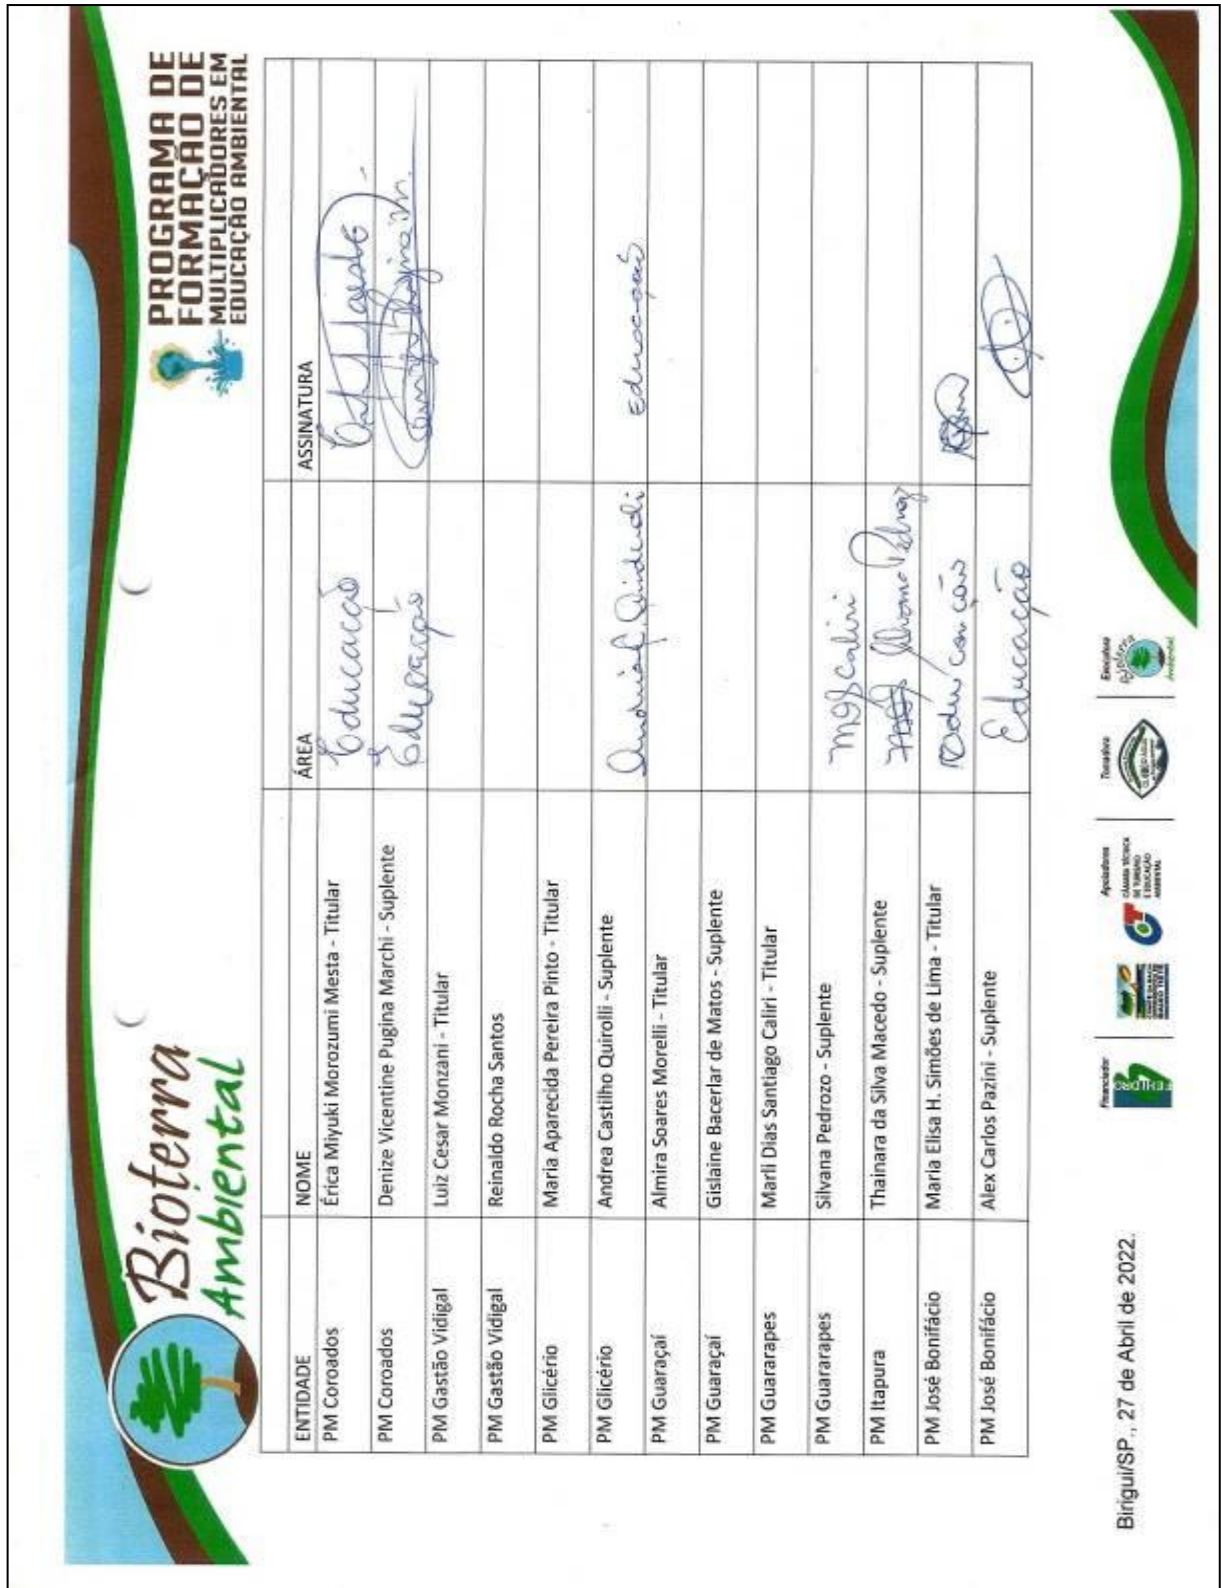 Bioterra
Ambiental
PROGRAMA DE
FORMAÇÃO DE
MULTIPLICADORES EM
EDUCAÇÃO AMBIENTAL
ENTIDADE NOME ÁREA ASSINATURA
PM Coroados Érica Miyuki Morozumi Mesta - Titular Educação
PM Coroados Denize Vicentine Pugina Marchi - Suplente Educação
PM Gastão Vidigal Luiz Cesar Monzani - Titular
PM Gastão Vidigal Reinaldo Rocha Santos
PM Glicério Maria Aparecida Pereira Pinto - Titular
PM Glicério Andrea Castilho Quirolli - Suplente
PM Guaraçaí Almira Soares Morelli - Titular
PM Guaraçaí Gislaine Bacerlar de Matos - Suplente
PM Guararapes Marli Dias Santiago Caliri - Titular
PM Guararapes Silvana Pedrozo - Suplente
PM Itapura Thainara da Silva Macedo - Suplente
PM José Bonifácio Maria Elisa H. Simões de Lima - Titular
PM José Bonifácio Alex Carlos Pazini - Suplente Educação
Birigui/SP., 27 de Abril de 2022.
Financiador Apoiadores Tomadora Executiva
FEHIDRO
CÂMARA TÉCNICA
DE TURISMO
E EDUCAÇÃO
AMBIENTAL
Bioterra
Ambiental